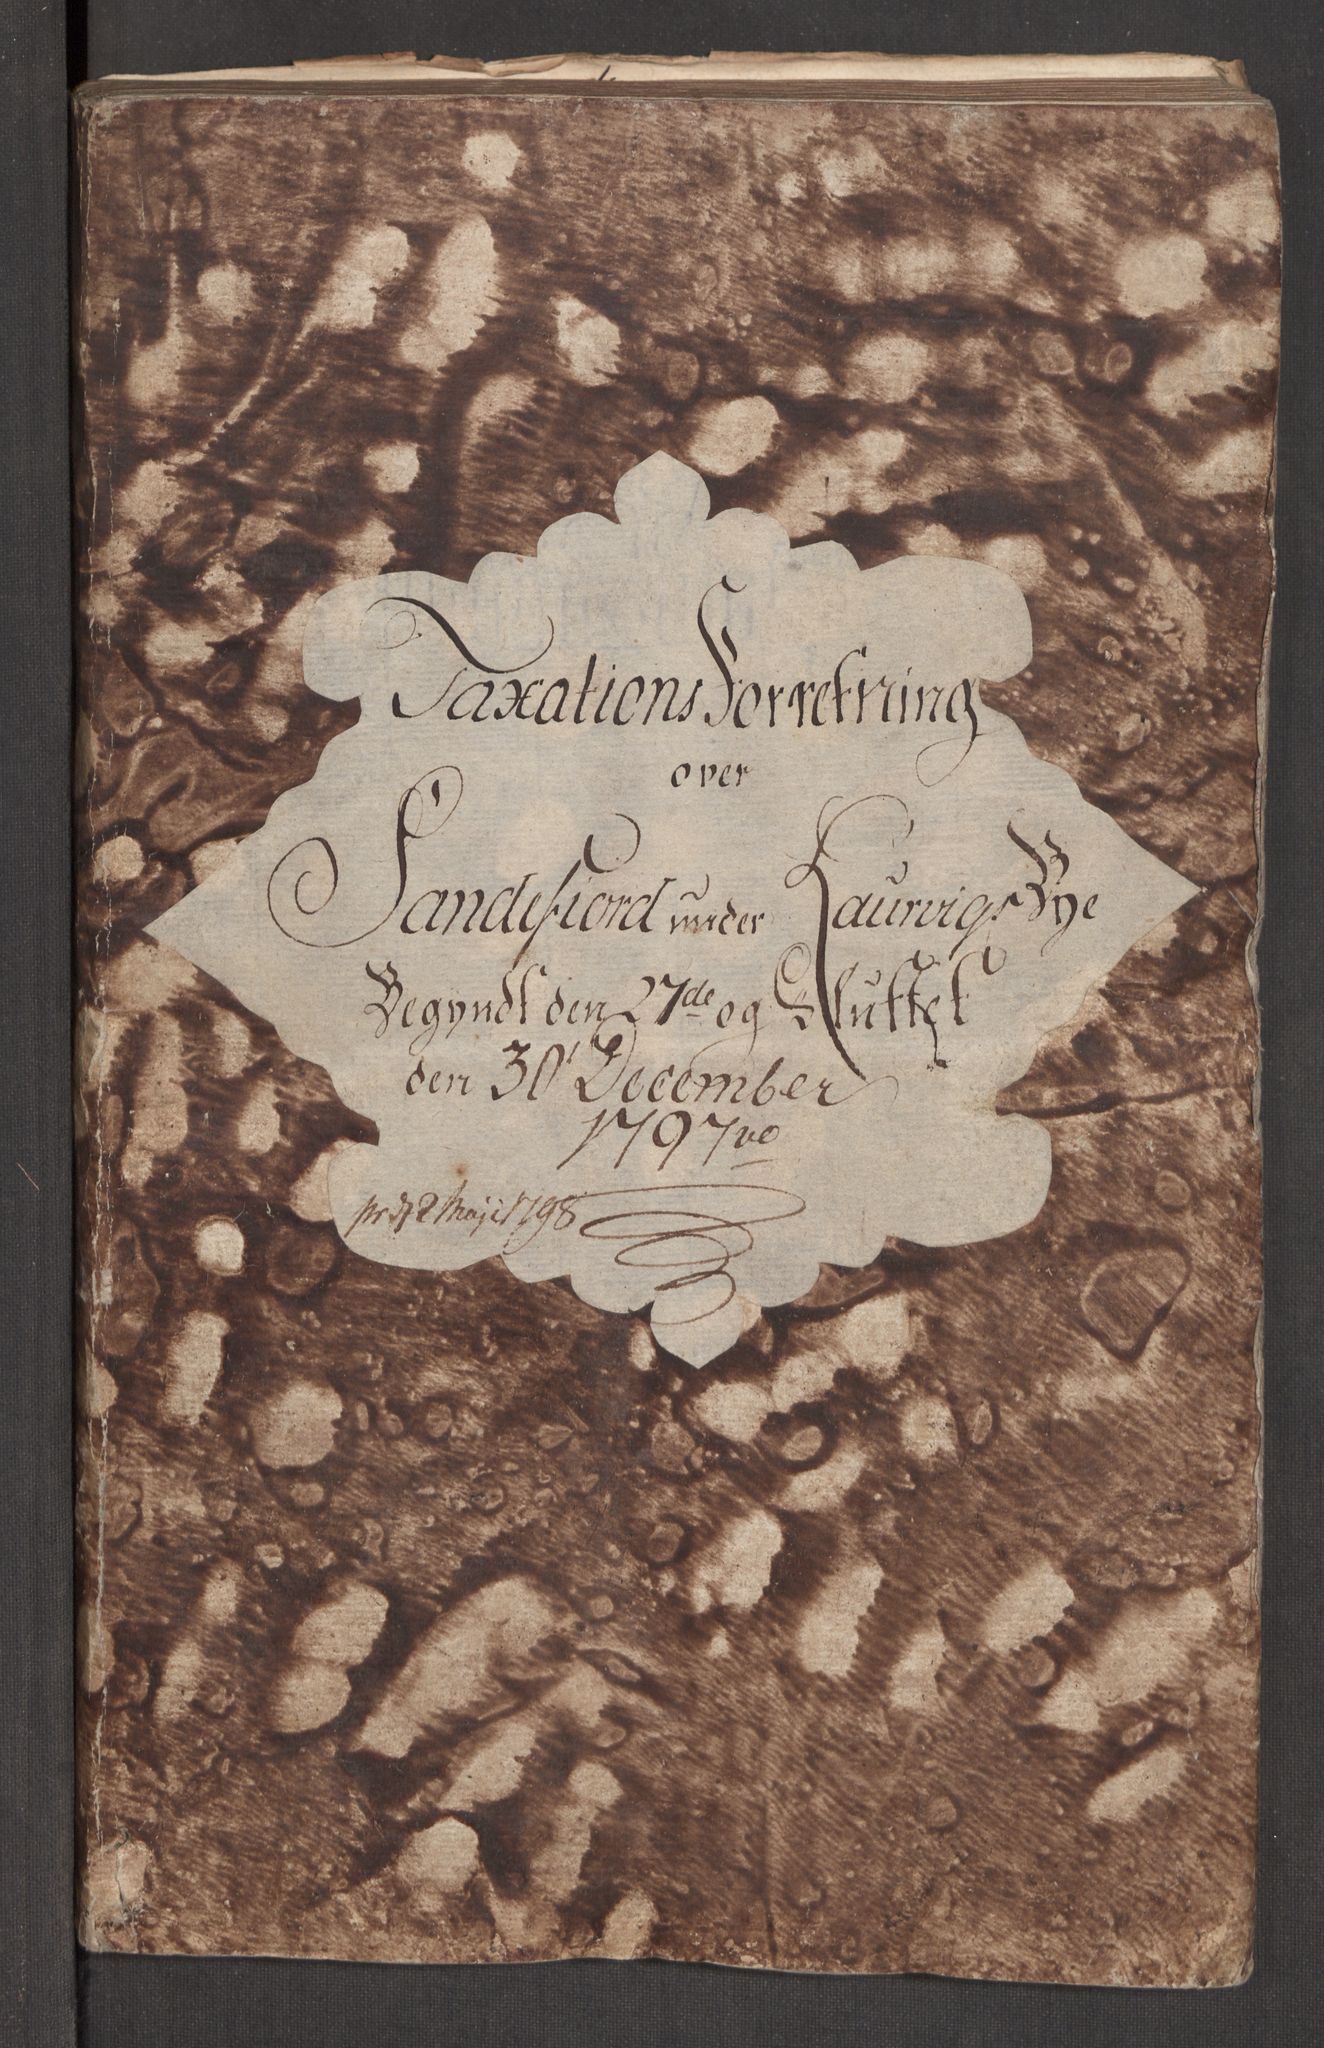 Taxations Forretning
over
Sandefiord under Laurvigs Bye
Begyndt den 27de og Sluttet
den 30' December
1797ve
pr d 2 Maji 1798